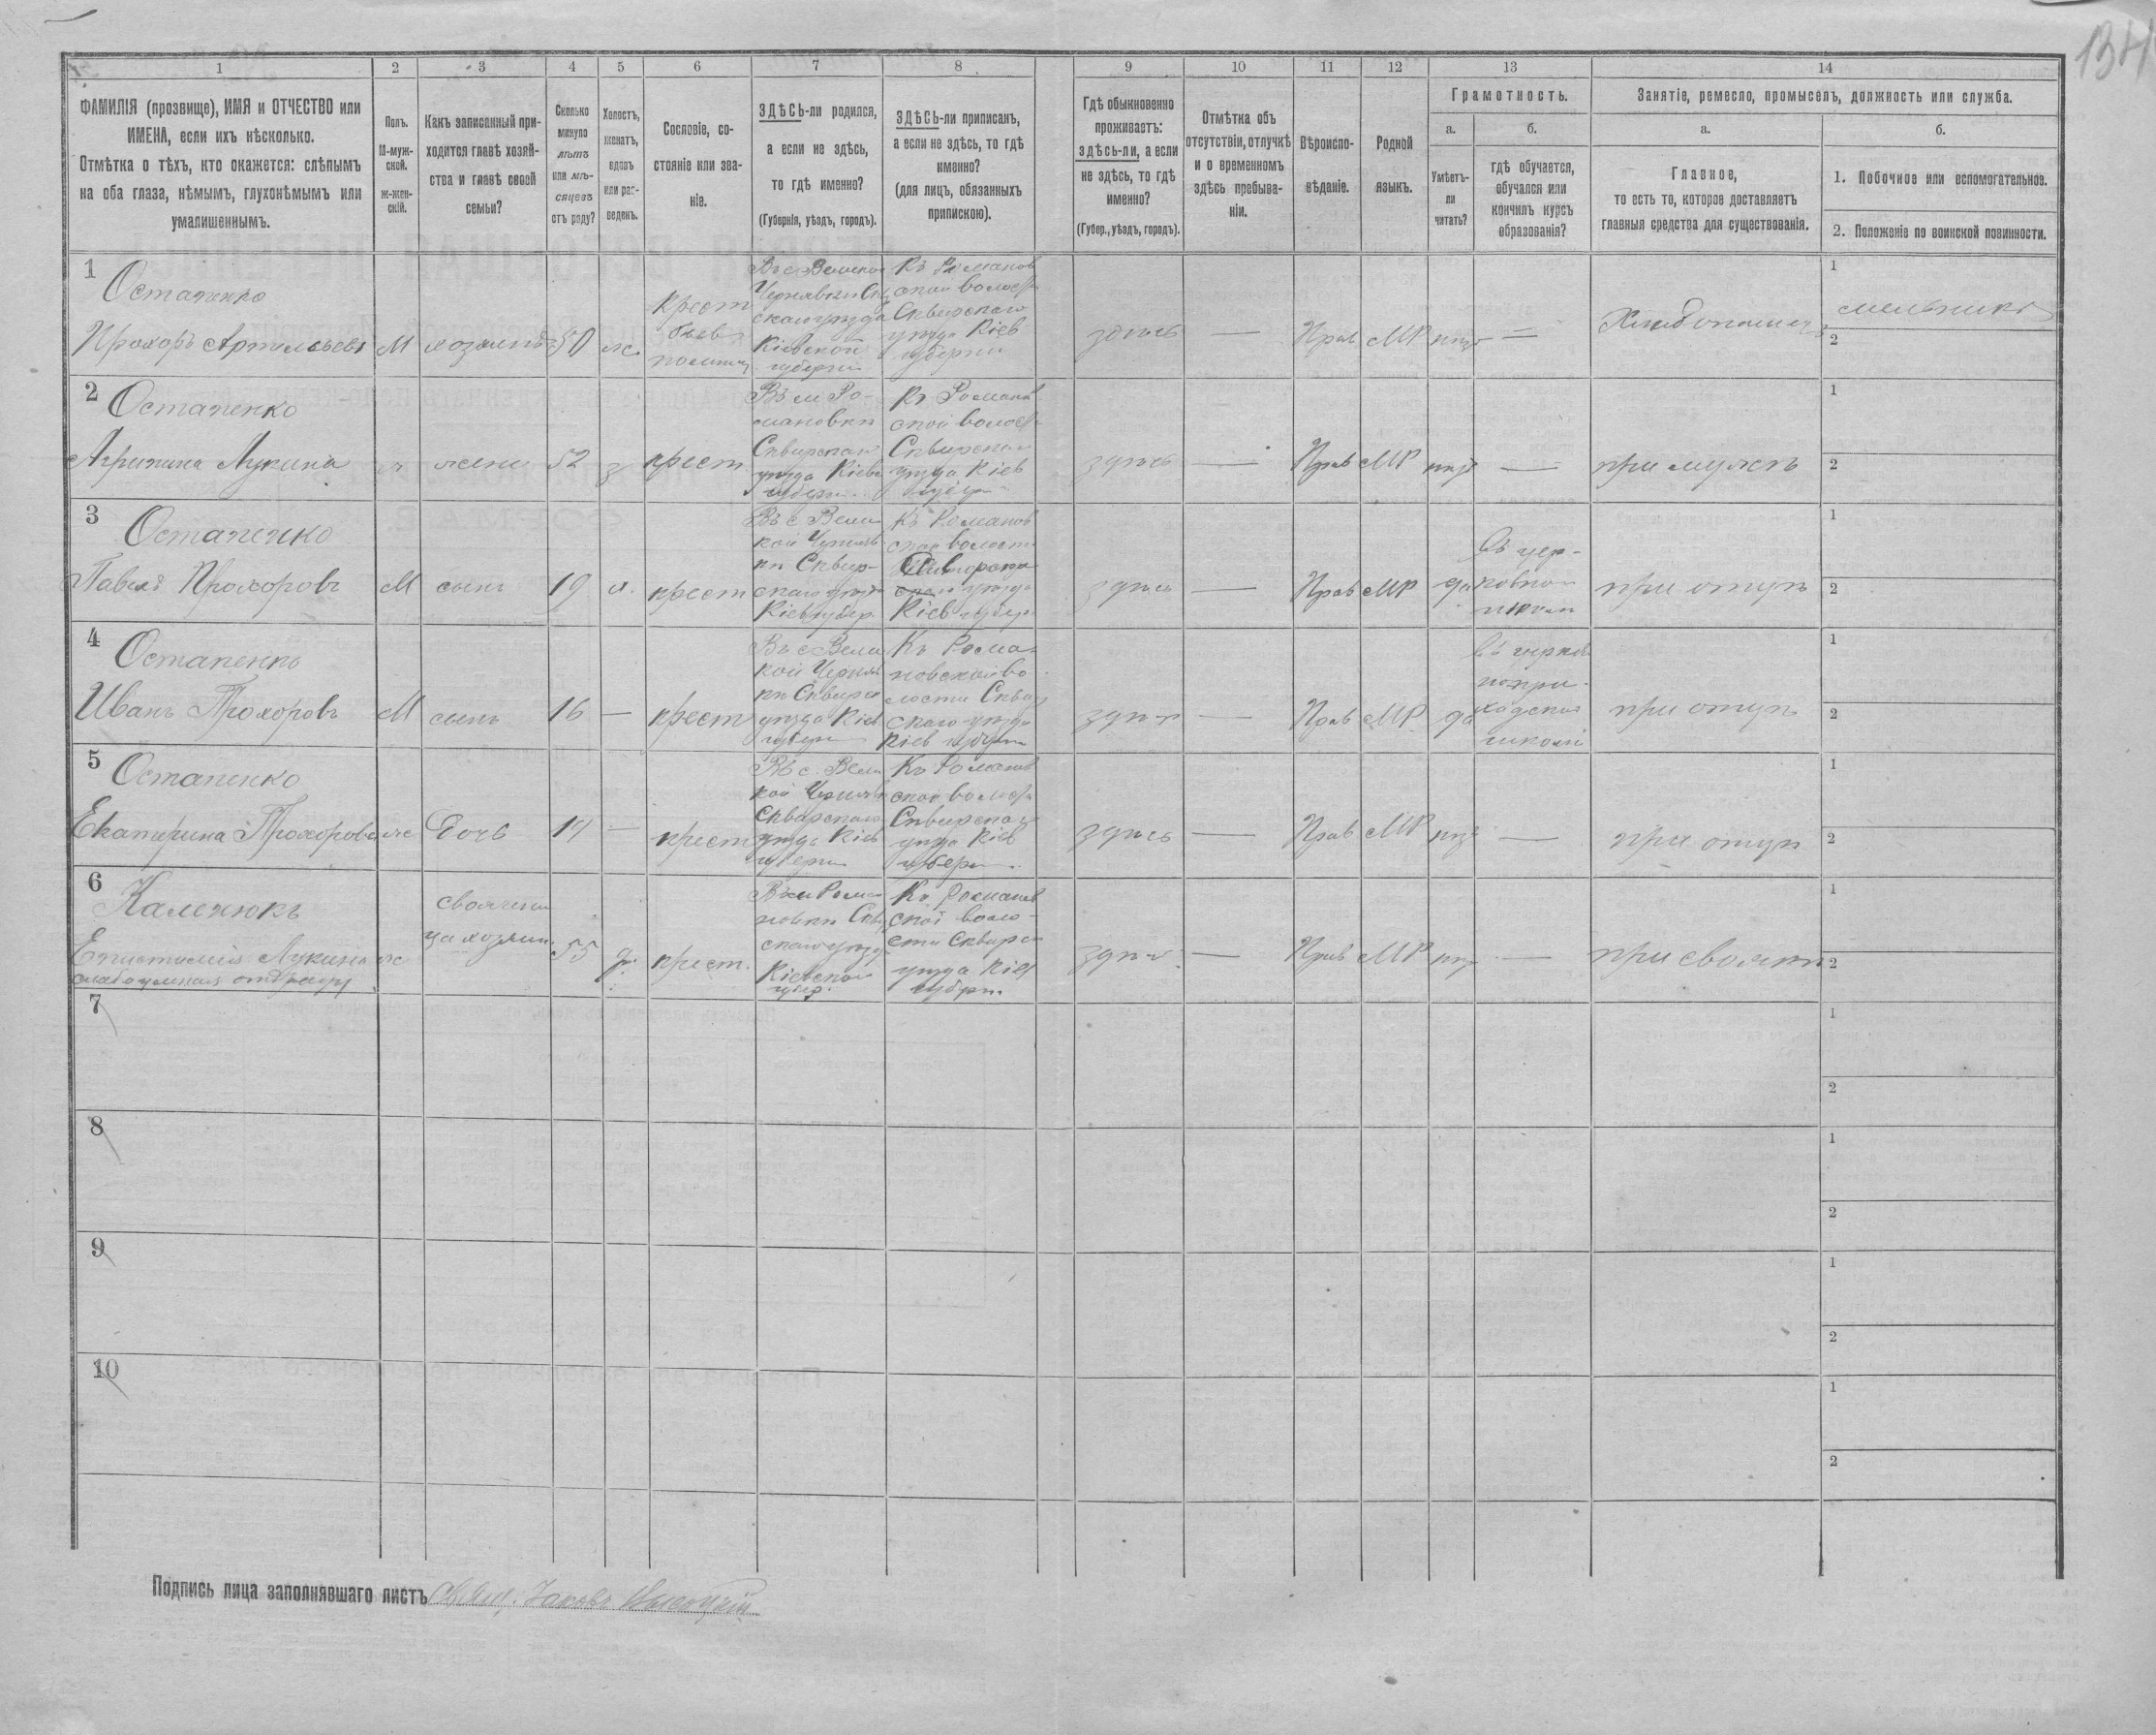 134
1 2 3 4 5 6 7 8 9 10 11 12 13 14
ФАМИЛІЯ (прозвище), ИМЯ и ОТЧЕСТВО или
ИМЕНА, если ихъ нѣсколько.
Отмѣтка о тѣхъ, кто окажется: слѣпымъ
на оба глаза, нѣмымъ, глухонѣмымъ или
умалишеннымъ.
Полъ.
М-муж-
ской.
ж-жен-
скій.
Какъ записанный при-
ходится главѣ хозяй-
ства и главѣ своей
семьи?
Сколько
минуло
лѣтъ
или мѣ-
сяцевъ
отъ роду?
Холостъ,
женатъ,
вдовъ
или раз-
веденъ.
Сословіе, со-
стояніе или зва-
ніе.
ЗДѢСЬ-ли родился,
а если не здѣсь,
то гдѣ именно?
(Губернія, уѣздъ, городъ).
ЗДѢСЬ-ли приписанъ,
а если не здѣсь, то гдѣ
именно?
(для лицъ, обязанныхъ
припискою).
Гдѣ обыкновенно
проживаетъ:
здѣсь-ли, а если
не здѣсь, то гдѣ
именно?
(Губер., уѣздъ, городъ).
Отмѣтка объ
отсутствіи, отлучкѣ
и о временномъ
здѣсь пребыва-
ніи.
Вѣроиспо-
вѣданіе.
Родной
языкъ.
Грамотность.
а.
Умѣетъ-
ли
читать?
б.
гдѣ обучается,
обучался или
кончилъ курсъ
образованія?
Занятіе, ремесло, промыселъ, должность или служба.
а.
Главное,
то есть то, которое доставляетъ
главныя средства для существованія.
б.
1. Побочное или вспомогательное.
2. Положеніе по воинской повинности.
1
Остапенко
Прохоръ
М
хозяинъ
50
ж.
крест
Кіевской
губерніи
Къ Романов
ской волости
Сквирскаго
уѣзда Кіев
губерніи
здѣсь
—
Прав
МР
нѣт
—
Хлебопашец
1
мельникъ
2
2
Остапенко
Агрипина Лукина
ж
жена
52
з
крест.
Въ м Ро-
мановки
Сквирскаг
уѣзда Кіевс
губерн.
Къ Романов
ской волост
Сквирскаг
уѣзда Кіев
губер
здѣсь
—
Прав
МР
нѣт
—
при мужѣ
1
2
3
Остапенко
Павелъ Прохоровъ
М
сынъ
19
х.
крест
Въ с Вели
кой Черняв
ки Сквир-
скаго уѣзд
Кіев губер.
Къ Романов
ской волости
уѣзда
Кіев губер
здѣсь
—
Прав
МР
да
въ цер-
ковной
школѣ
при отцѣ
1
2
4
Остапенко
Иванъ Прохоровъ
М
сынъ
16
—
крест
Въ с Вели
кой Черняв
ки Сквирск
уѣзда Кіев
губерн
Къ Рома-
новской во-
лости Сквир
скаго уѣзда
Кіев губерн
здѣсь
—
Прав
МР
да
въ церков
нопри-
ходской
школѣ
при отцѣ
1
2
5
Остапенко
Екатерина Прохорова
ж
дочь
14
—
крест
Въ с. Вели
кой Чернявк
Сквирскаго
уѣзда Кіев
губерн
Къ Романов
ской волост
Сквирскаг
уѣзда Кіев
губерн.
здѣсь
—
Прав
МР
нѣт
—
при отцѣ
1
2
6
Каленюкъ
Епистимія Лукина
ж
своячени
ца хозяин
55
крест.
Въ м Рома
новки Скви
скаго уѣзд
Кіевской
губер.
Къ Романов
ской воло-
сти Сквирск
уѣзда Кіев
губерн.
здѣсь
—
Прав
МР
нѣт
—
при своякѣ
1
2
7
1
2
8
1
2
9
1
2
10
1
2
Подпись лица заполнявшаго листъ Свящ. Іаковъ Высоцкій